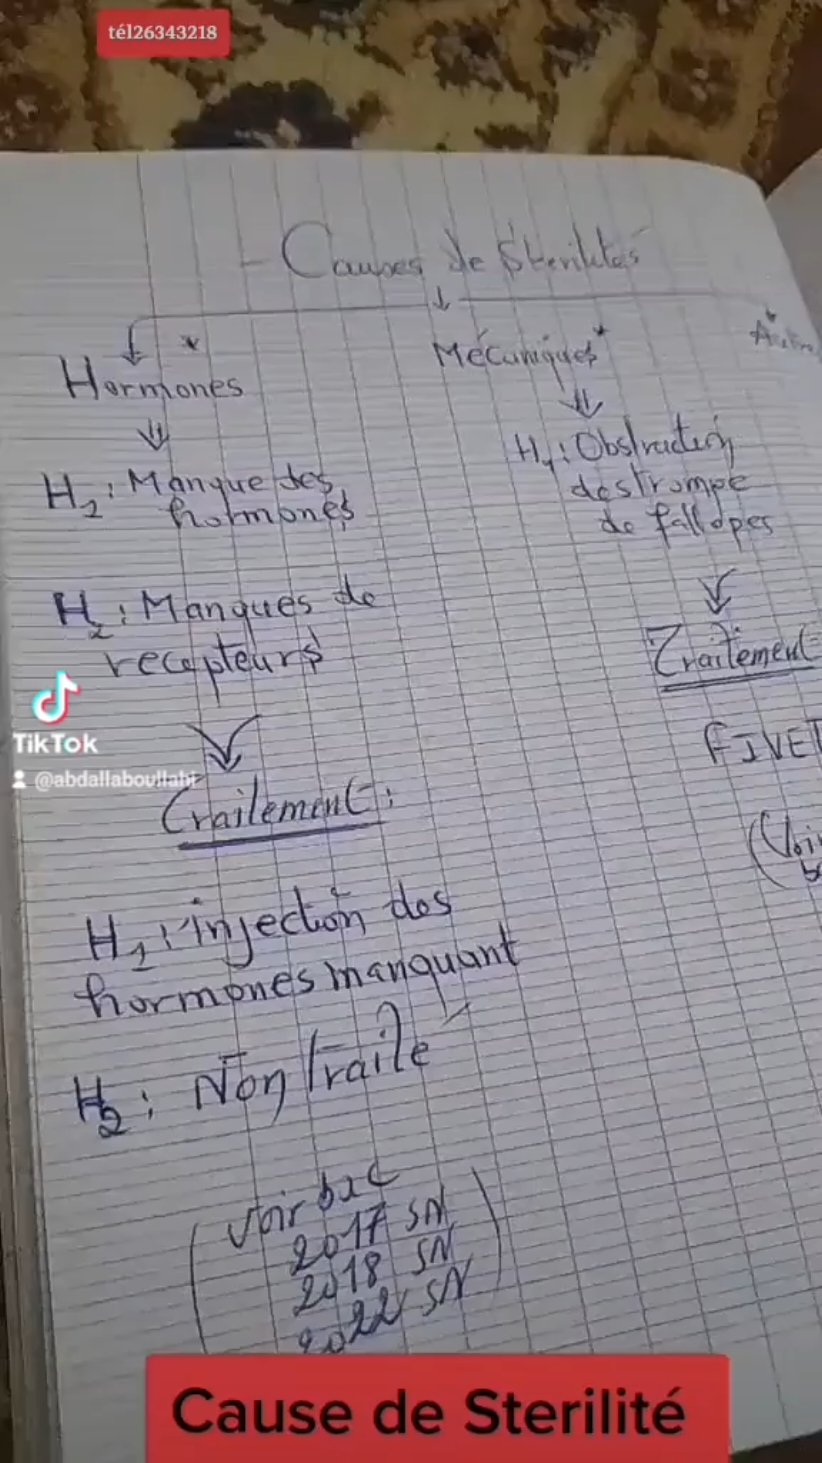 tél26343218
- Causes de Sterilités
Hormones
H1 : Manque des
hormones
H2 : Manques de
recepteurs
Traitement :
H1 : injection des
hormones manquant
H2 : Non traité
(Voir bac
2017 SN
2018 SN
2022 SN)
Mécaniques
H1 : Obstruction
des trompe
de fallopes
Traitement
FIVET
(Voir
TikTok
@abdallaboullahi
Cause de Sterilité